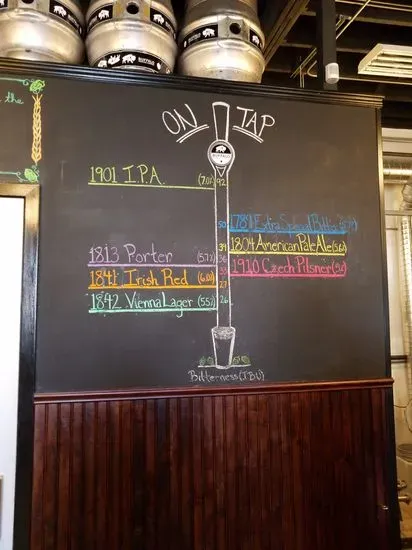 the
ON TAP
BUFFALO
1901 I.P.A. (7.0%) 92
50 1789 Extra Special Bitter
39 1804 American Pale Ale (5.6%)
1813 Porter (5.7%) 36
33 1910 Czech Pilsner
1841 Irish Red (6.0%) 27
1842 Vienna Lager (5.5%) 26
Bitterness (IBU)